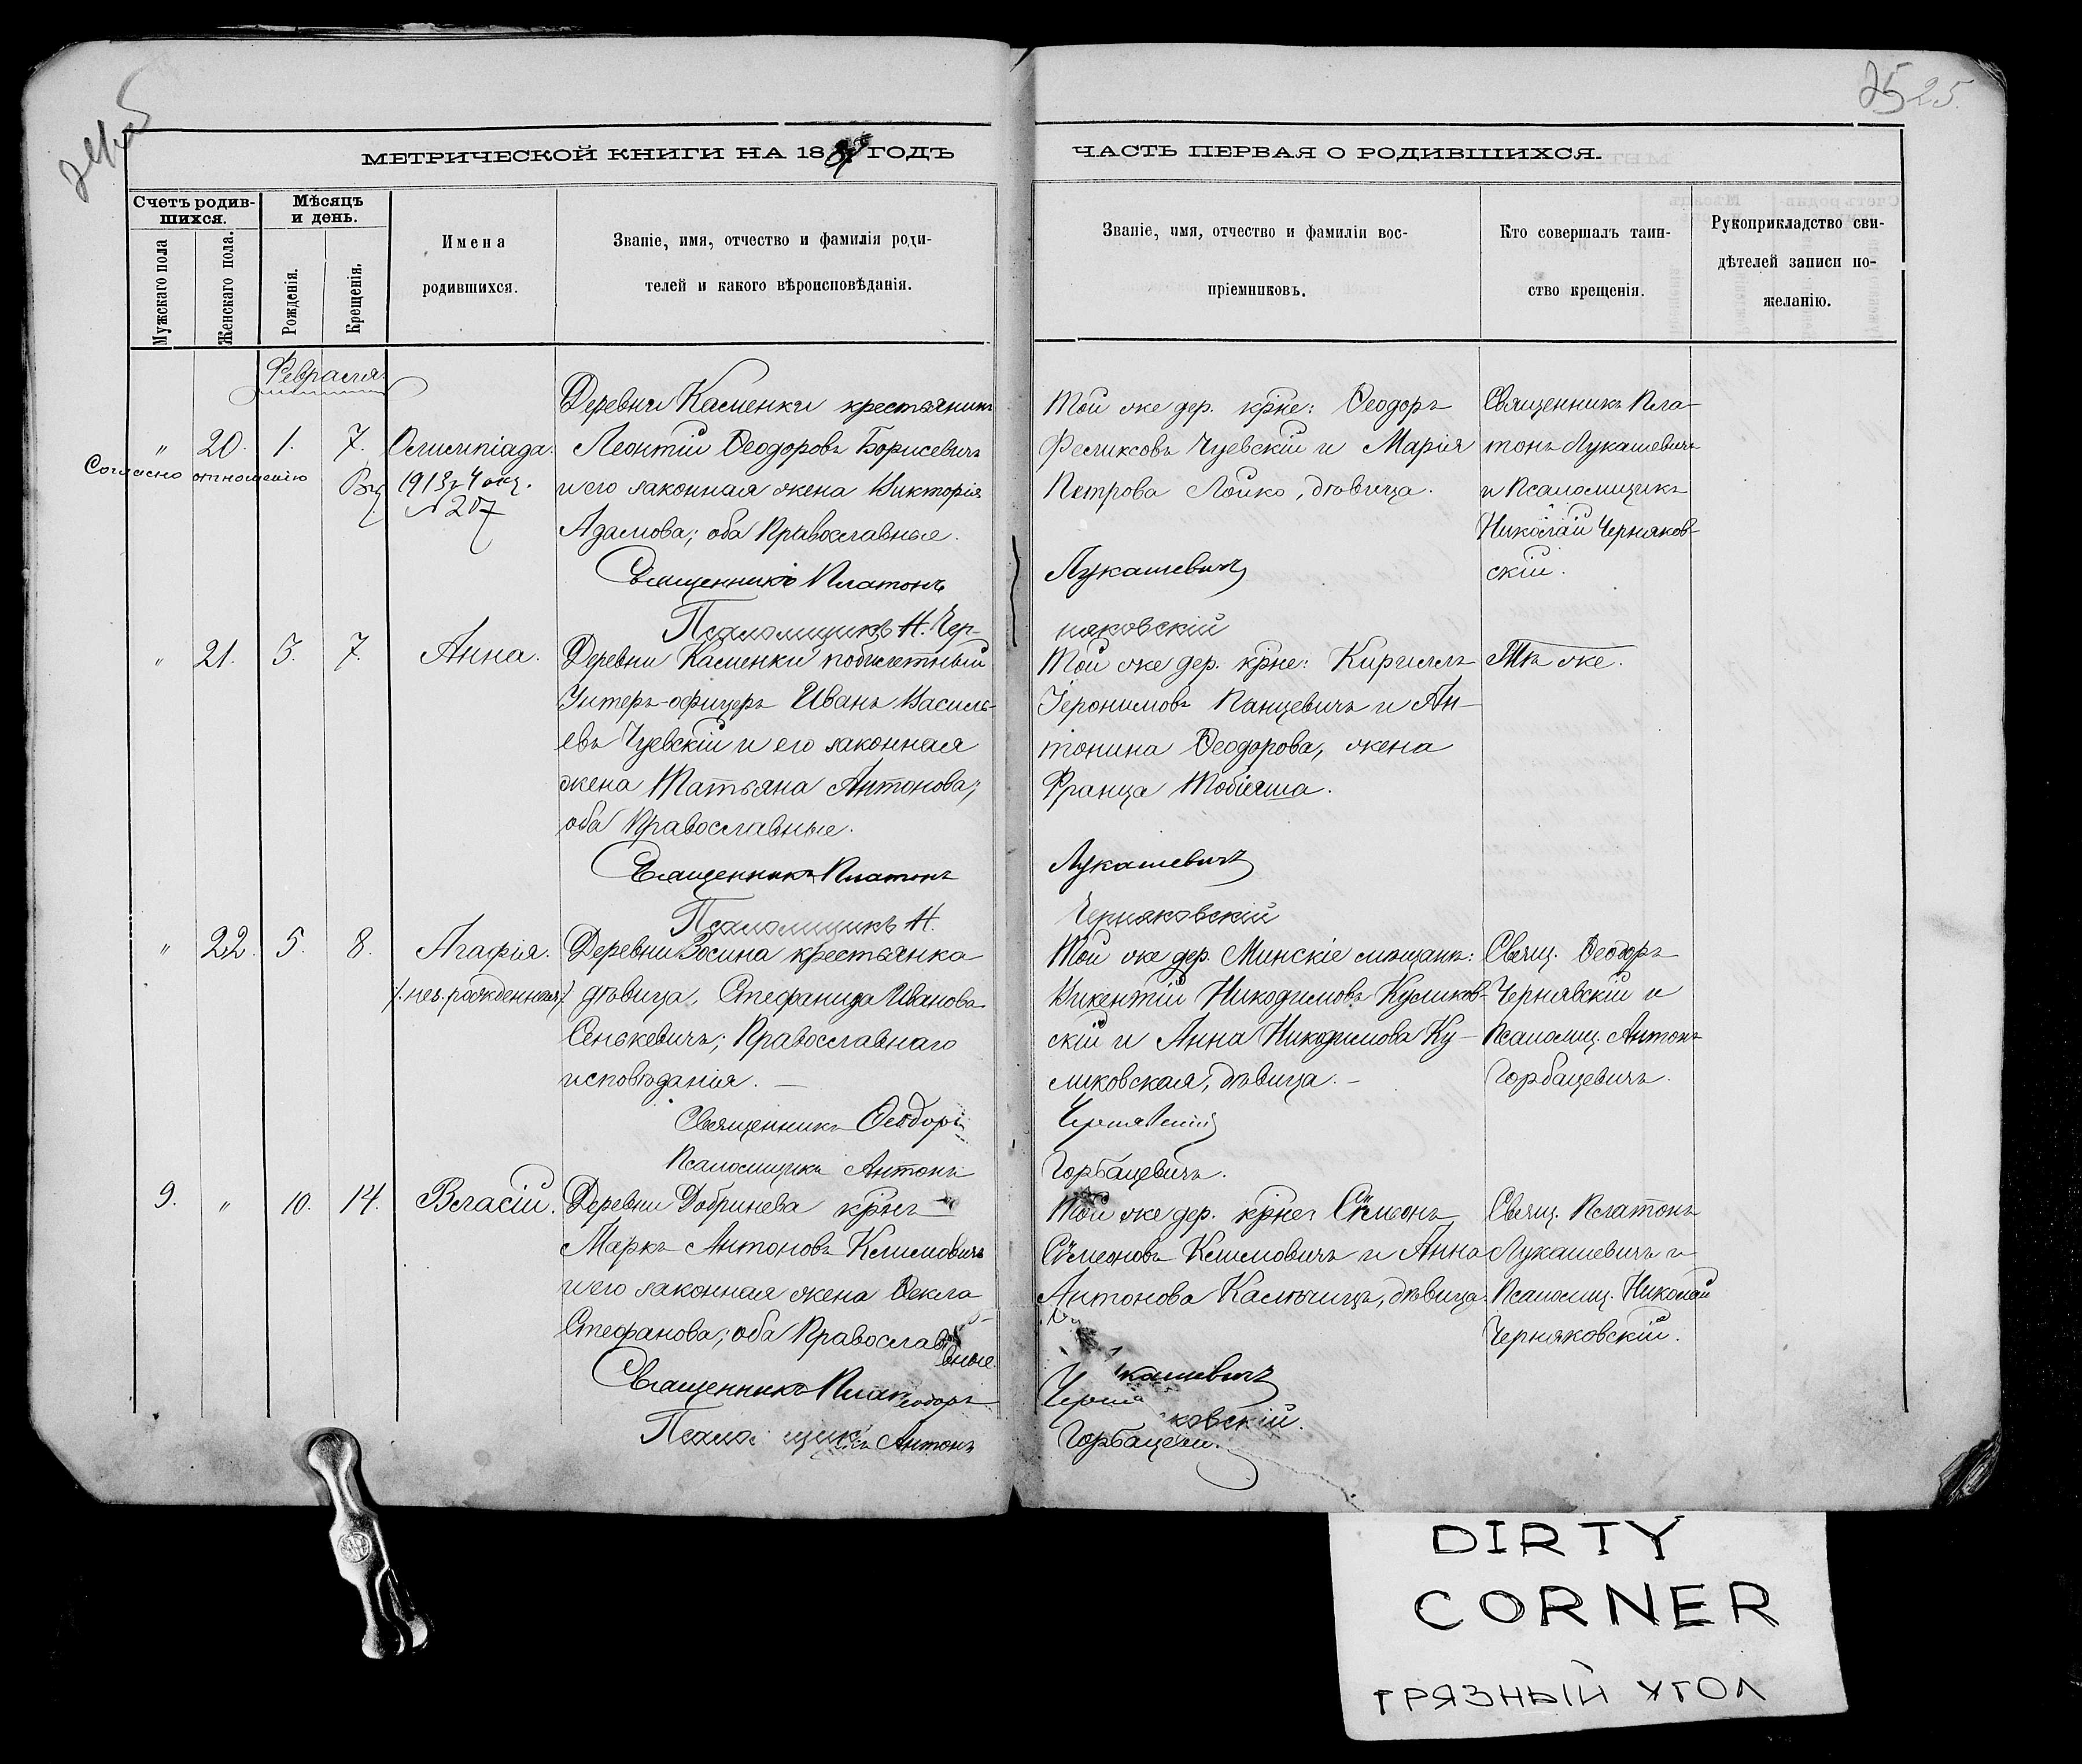 25 25.
МЕТРИЧЕСКОЙ КНИГИ НА 18 ГОДЪ
ЧАСТЬ ПЕРВАЯ О РОДИВШИХСЯ.
Счетъ родив-
шихся.
Мужскаго пола
Женскаго пола.
Мѣсяцъ
и день.
Рожденія.
Крещенія.
Имена
родившихся.
Званіе, имя, отчество и фамилія роди-
телей и какого вѣроисповѣданія.
Званіе, имя, отчество и фамиліи вос-
пріемниковъ.
Кто совершалъ таин-
ство крещенія.
Рукоприкладство сви-
дѣтелей записи по-
желанію.
Февраля
" 20. 1. 7. Олимпіада.
Согласно отношенію
1913 г. 4 окт.
№ 207
Деревни Каменки крестьянинъ
Леонтій Ѳеодоровъ Борисевичъ
и его законная жена Викторія
Адамова; оба Православные.
Священникъ Платонъ
Псаломщикъ Н. Чер-
Той же дер. кр̃не: Ѳеодоръ
Феликсовъ Чуевскій и Марія
Петрова Лойко, дѣвица.
Лукашевичъ
няковскій
Священникъ Пла-
тонъ Лукашевичъ
и Псаломщикъ
Николай Черняков-
скій.
" 21. 5. 7. Анна.
Деревни Каменки
Унтеръ-офицеръ Иванъ Василь-
евъ Чуевскій и его законная
жена Татьяна Антонова;
оба Православные.
Священникъ Платонъ
Псаломщикъ Н.
Той же дер. кр̃не: Кириллъ
Іеронимовъ Панцевичъ и Ан-
тонина Ѳеодорова, жена
Франца Тобіяша.
Лукашевичъ
Черняковскій
Тѣ же.
" 22. 5. 8. Агафія.
/. нез. рожденная /
Деревни Зосина крестьянка
дѣвица, Стефанида Иванова
Сенькевичъ; Православнаго
исповѣданія. —
Священникъ Ѳеодоръ
Псаломщикъ Антонъ
Той же дер. Минскіе мѣщане:
Викентій Никодимовъ Куликов-
скій и Анна Никодимова Ку-
ликовская, дѣвица. –
Чернявскій
Горбацевичъ.
Свящ. Ѳеодоръ
Чернявскій и
Псаломщ. Антонъ
Горбацевичъ.
9. " 10. 14. Власій.
Деревни Добринева
Маркъ Антоновъ Климовичъ
и его законная жена Ѳекла
Стефанова; оба Православ
вные.
Священникъ Плат
еодоръ
Псало щикъ Антонъ
Той же дер. кр̃не: Сѵмеонъ
Сѵмеоновъ Климовичъ и Анна
Антонова Калѣчицъ, дѣвица.
кашевичъ
Черня
ковскій.
Горбацеви
Свящ. Платонъ
Лукашевичъ и
Псаломщ. Николай
Черняковскій.
DIRTY
CORNER
ГРЯЗНЫЙ УГОЛ